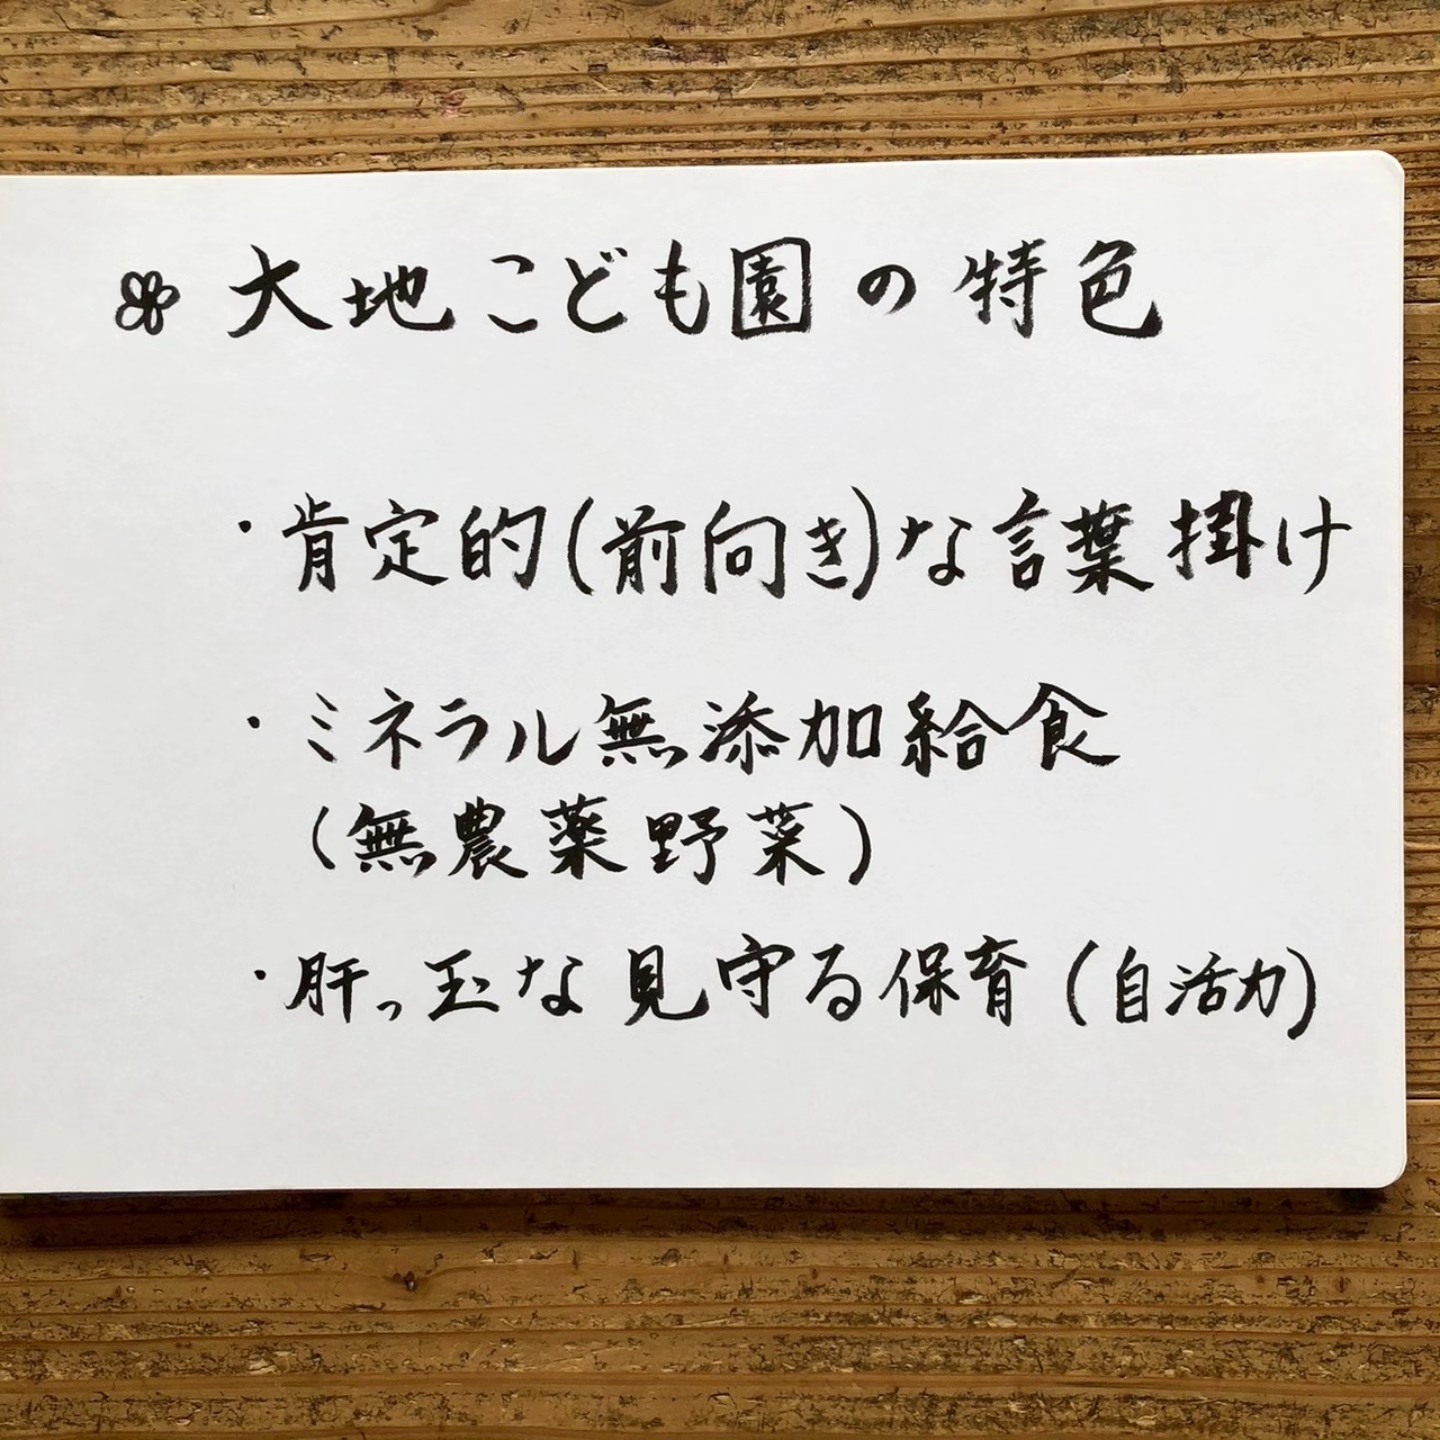 大地こども園の特色
・肯定的(前向き)な言葉掛け
・ミネラル無添加給食
(無農薬野菜)
・肝っ玉な見守る保育(自活力)